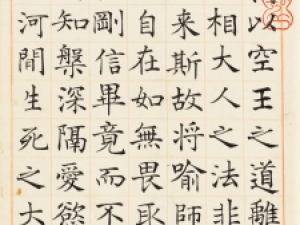 以空王之道離
相大人之法非
来斯故将喻師
自在如無畏取
剛信畢竟而不
知槃深隔愛慾
河間生死之大